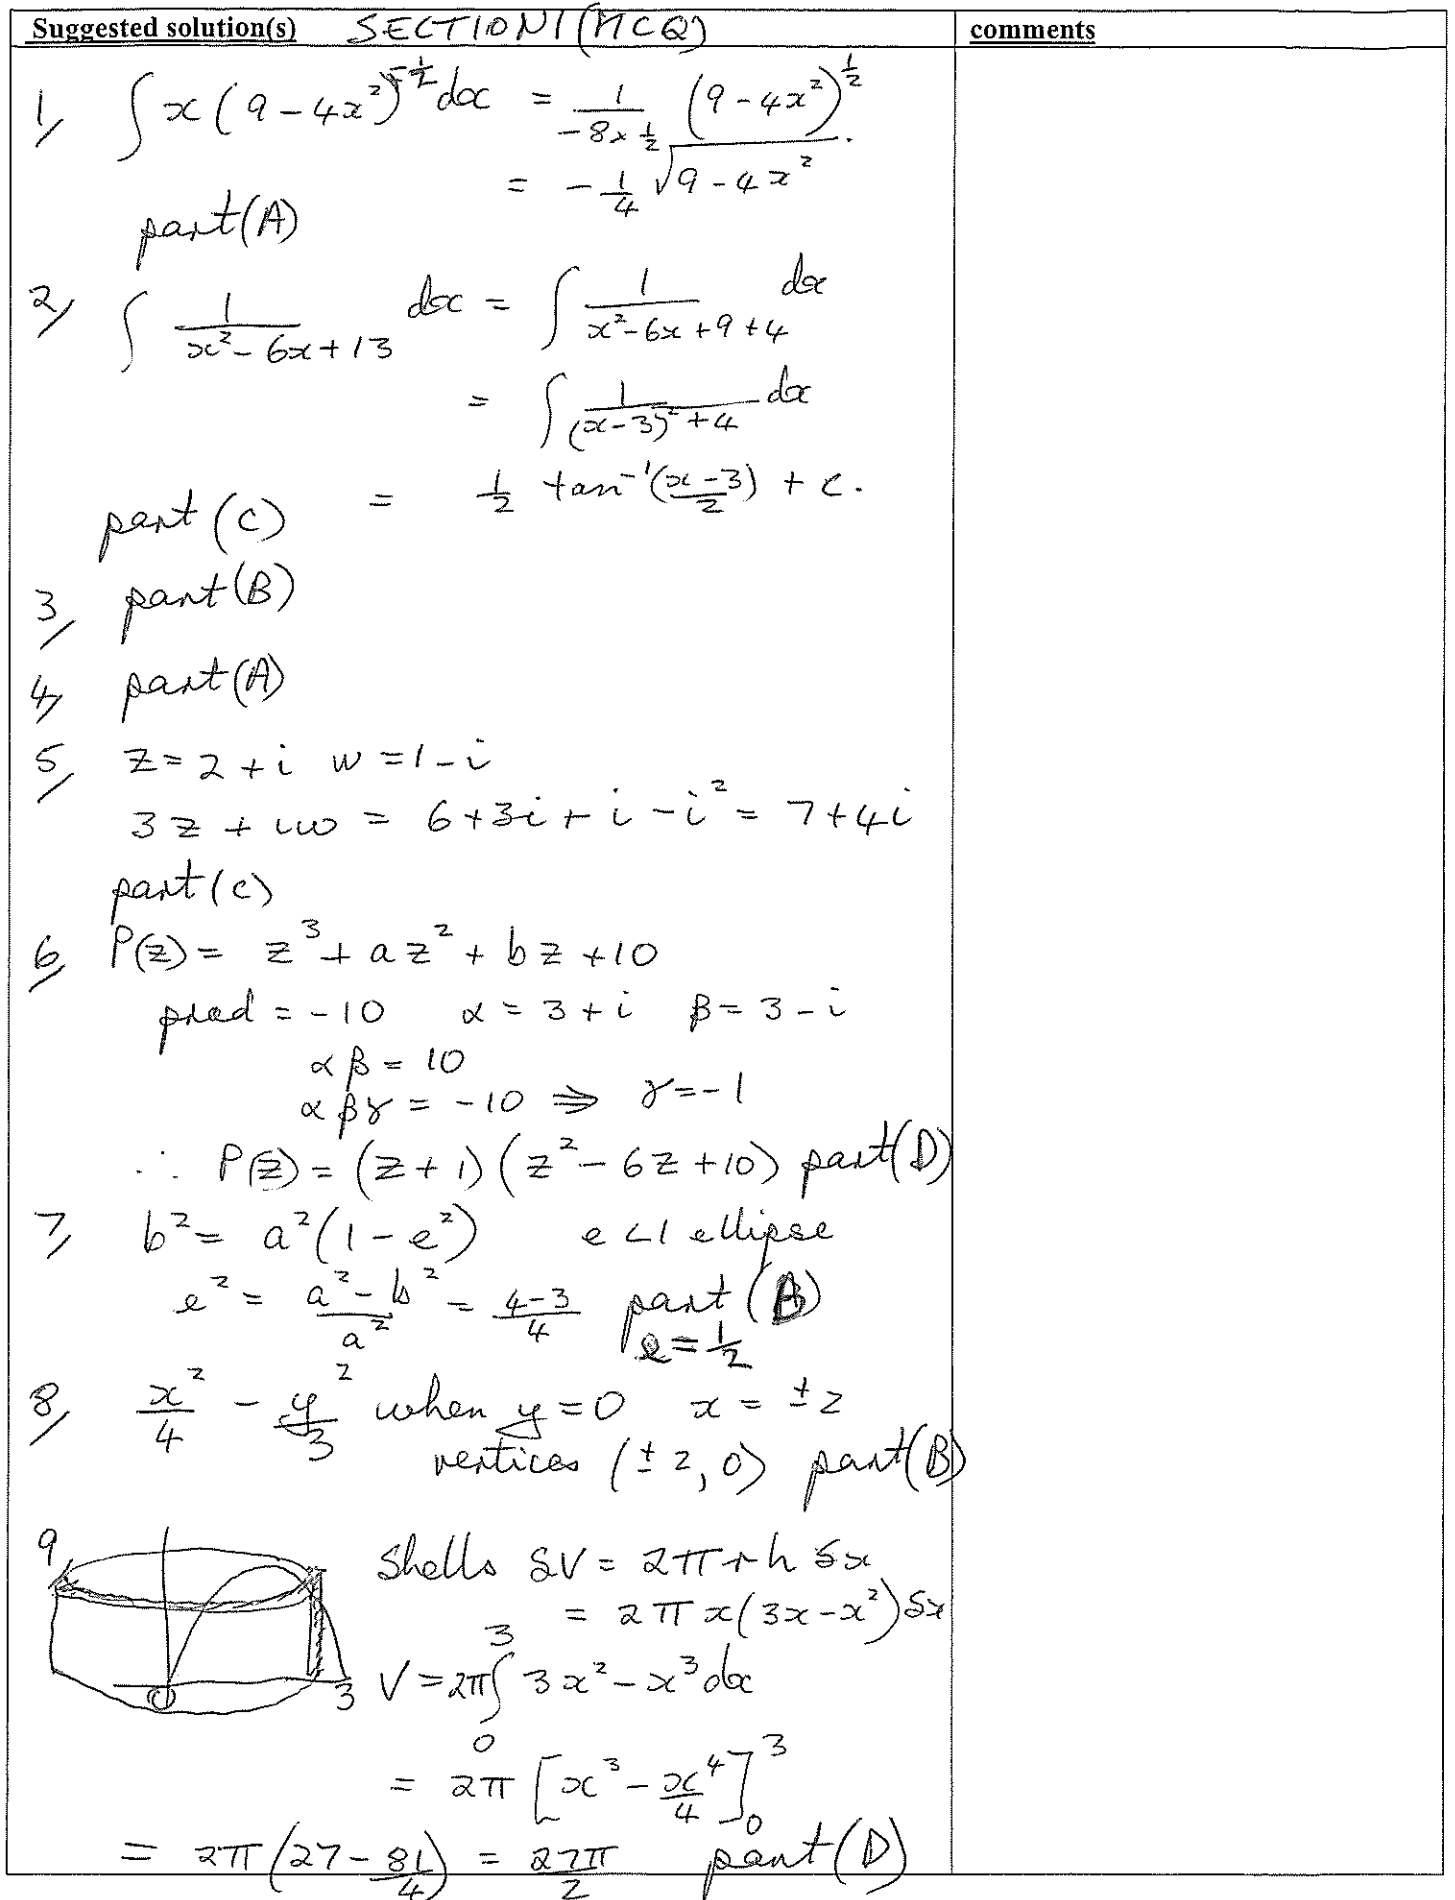 Suggested solution(s) SECTION 1 (MCQ) comments
1, ∫ x(9-4x²)^{-1/2} dx = 1/(-8×1/2) (9-4x²)^{1/2}.
= -1/4 √(9-4x²)
part (A)
2, ∫ 1/(x²-6x+13) dx = ∫ 1/(x²-6x+9+4) dx
= ∫ 1/((x-3)²+4) dx
= 1/2 tan⁻¹((x-3)/2) + c.
part (C)
3, part (B)
4, part (A)
5, z = 2+i w = 1-i
3z + iw = 6+3i+i-i² = 7+4i
part (c)
6, P(z) = z³+az²+bz+10
prod = -10 α = 3+i β = 3-i
αβ = 10
αβγ = -10 ⇒ γ = -1
∴ P(z) = (z+1)(z²-6z+10) part (D)
7, b² = a²(1-e²) e<1 ellipse
e² = (a²-b²)/a² = (4-3)/4 part (B)
e = 1/2
8, x²/4 - y²/3 when y=0 x = ±2
vertices (±2,0) part (B)
9, Shells δV = 2πrh δx
= 2πx(3x-x²)δx
0 3 V = 2π∫₀³ 3x²-x³ dx
= 2π[x³-x⁴/4]₀³
= 2π(27-81/4) = 27π/2 part (D)